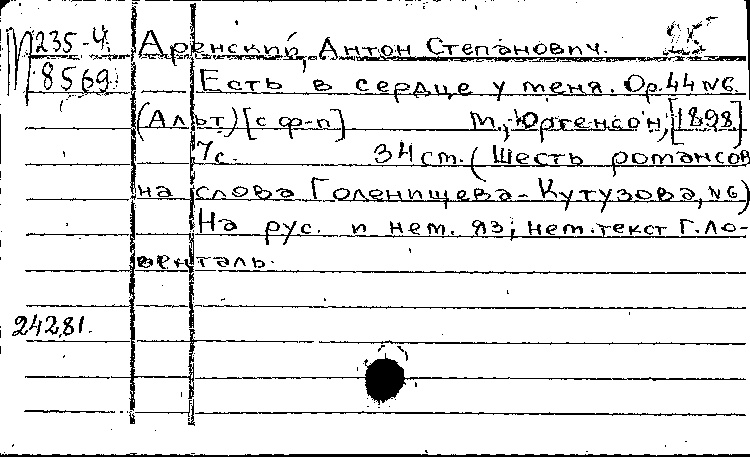 235-4 Аренский, Антон Степанович. 25
8569 Есть в сердце у меня. Op.44 №6.
(Альт) [с ф-п] М., Юргенсон, [1898]
7с. 34 cm. (Шесть романсов
на слова Голенищева-Кутузова, №6)
На рус. и нем. яз; нем. текст Г. Ло-
венталь.
24281.